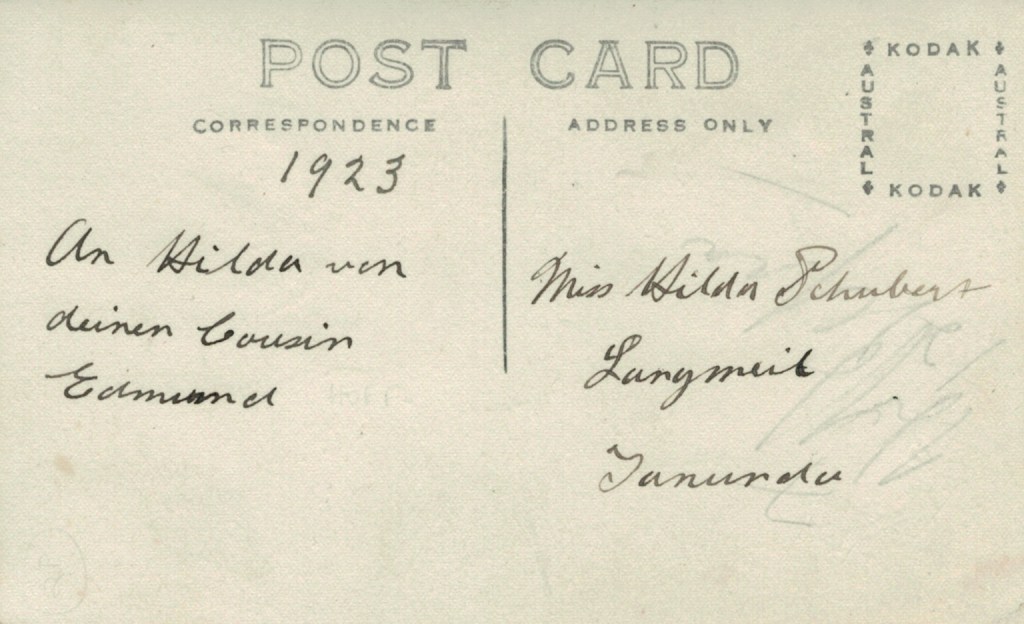 POST CARD
CORRESPONDENCE
ADDRESS ONLY
KODAK
AUSTRAL
AUSTRAL
KODAK
1923
An Hilda von
deinen Cousin
Edmund
Miss Hilda Schubert
Langmeil
Tanunda